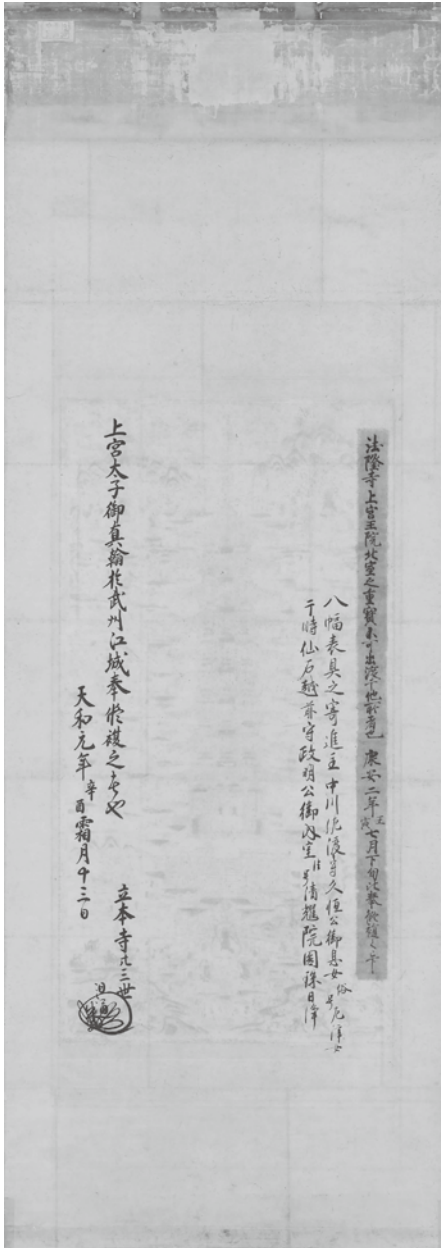 法隆寺上宮王院北室之重寳不可出渡于他所者也 康安二年壬寅七月下旬比奉修復之畢
八幅表具之寄進主中川佐渡守久恒公御息女俗号元津女
于時仙石越前守政明公御内室法号清耀院圓珠日澤
上宮太子御真翰於武州江城奉修複之者也
天和元年辛酉霜月十三日
立本寺廿三世
日